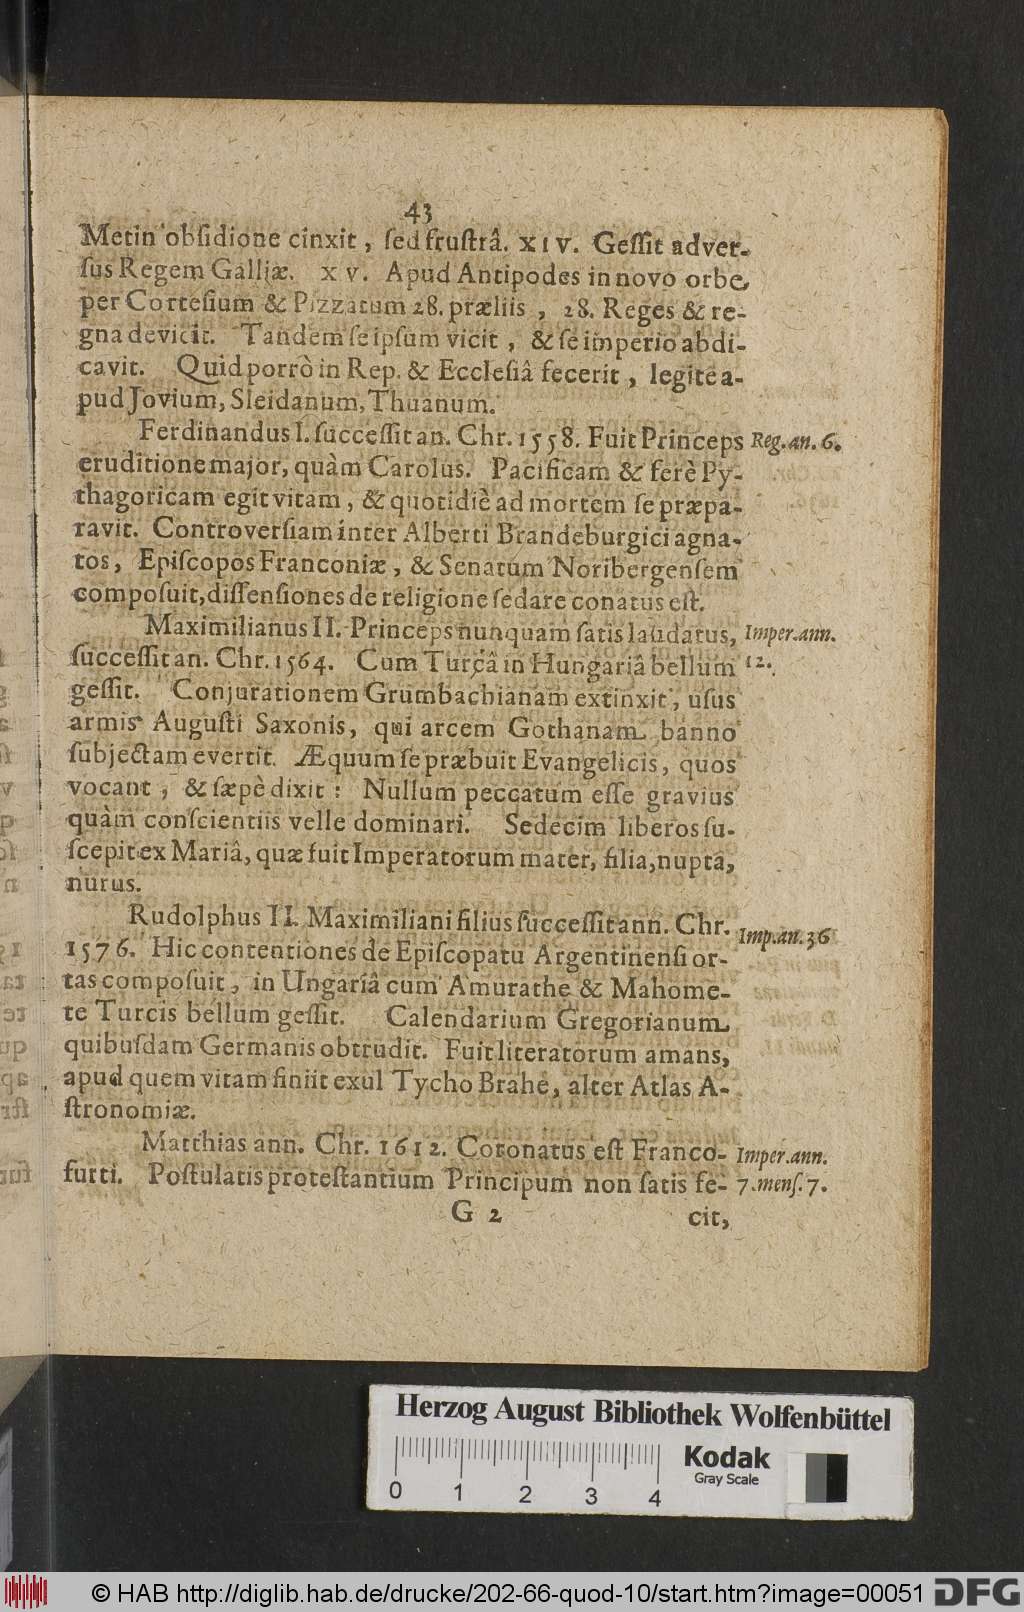 43
Metin obsidione cinxit, sed frustrâ. XIV. Gessit adver-
sus Regem Galliæ. XV. Apud Antipodes in novo orbe,
per Cortesium & Pizzatum 28. præliis, 28. Reges & re-
gna devicit. Tandem se ipsum vicit, & se imperio abdi-
cavit. Quid porrò in Rep. & Ecclesiâ fecerit, legite a-
pud Jovium, Sleidanum, Thuanum.
Ferdinandus I. successit an. Chr. 1558. Fuit Princeps Reg. an. 6.
eruditione major, quàm Carolus. Pacificam & ferè Py-
thagoricam egit vitam, & quotidiè ad mortem se præpa-
ravit. Controversiam inter Alberti Brandeburgici agna-
tos, Episcopos Franconiæ, & Senatum Noribergensem
composuit, dissensiones de religione sedare conatus est.
Maximilianus II. Princeps nunquam satis laudatus, Imper. ann.
successit an. Chr. 1564. Cum Turcâ in Hungariâ bellum 12.
gessit. Conjurationem Grumbachianam extinxit, usus
armis Augusti Saxonis, qui arcem Gothanam banno
subjectam evertit. Æquum se præbuit Evangelicis, quos
vocant, & sæpè dixit: Nullum peccatum esse gravius
quàm conscientiis velle dominari. Sedecim liberos su-
scepit ex Mariâ, quæ fuit Imperatorum mater, filia, nupta,
nurus.
Rudolphus II. Maximiliani filius successit ann. Chr. Imp. an. 36
1576. Hic contentiones de Episcopatu Argentinensi or-
tas composuit, in Ungariâ cum Amurathe & Mahome-
te Turcis bellum gessit. Calendarium Gregorianum
quibusdam Germanis obtrudit. Fuit literatorum amans,
apud quem vitam finiit exul Tycho Brahe, alter Atlas A-
stronomiæ.
Matthias ann. Chr. 1612. Coronatus est Franco- Imper. ann.
furti. Postulatis protestantium Principum non satis fe- 7. mens. 7.
G 2 cit,
Herzog August Bibliothek Wolfenbüttel
Kodak
Gray Scale
0 1 2 3 4
© HAB http://diglib.hab.de/drucke/202-66-quod-10/start.htm?image=00051
DFG